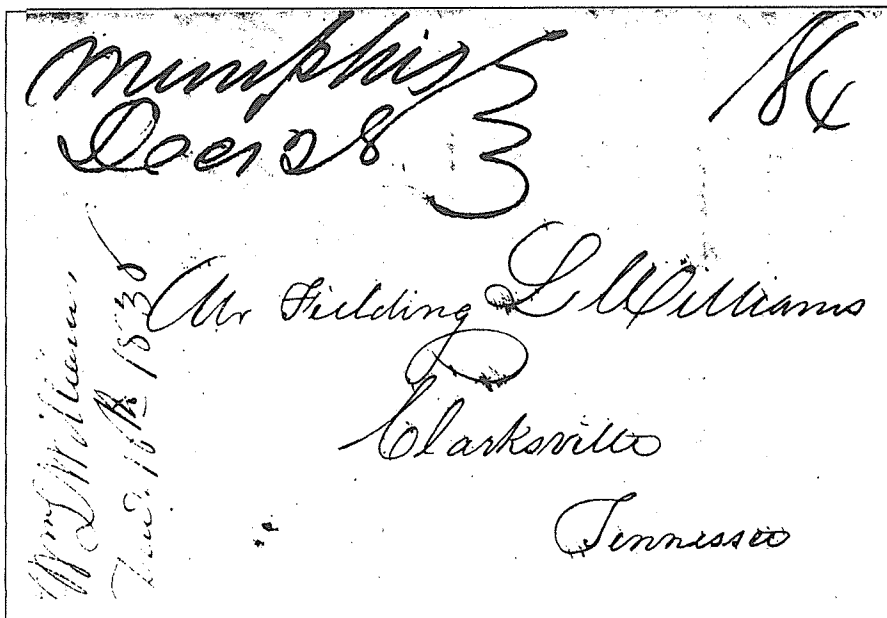 Memphis
Dec 28
Mr Fielding L Williams
Clarksville
Tennessee
Wm L Williams
16th 1830